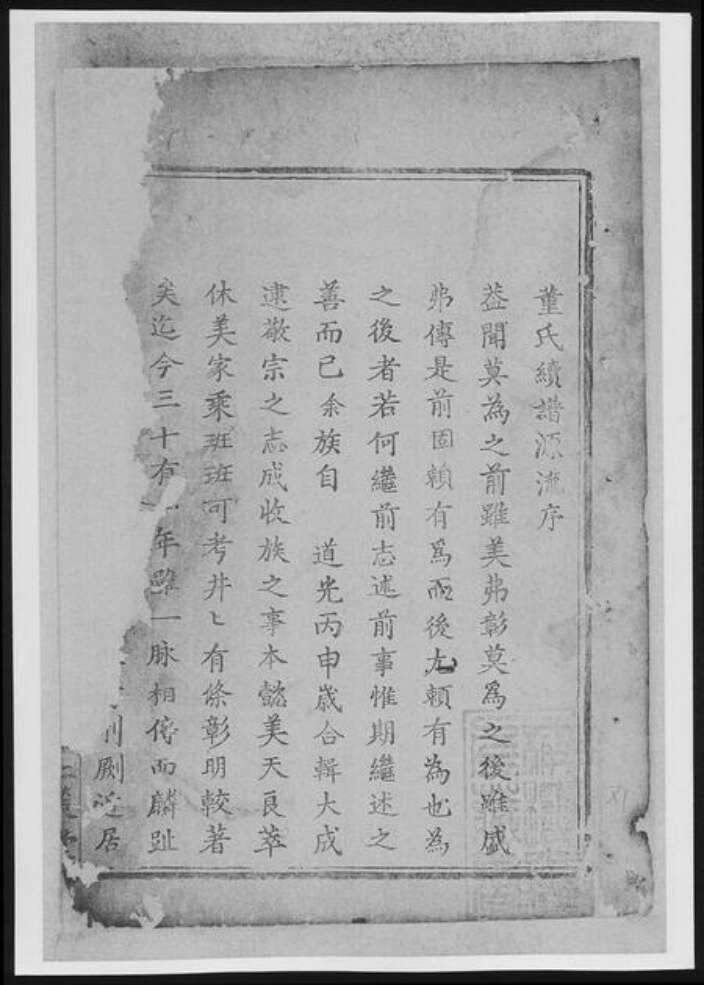 董氏續譜源流序
葢聞莫為之前雖美弗彰莫爲之後雖盛
弗傳是前固賴有爲而後尤賴有為也為
之後者若何繼前志述前事惟期繼述之
善而已余族自　道光丙申歲合輯大成
逮敬宗之志成收族之事本懿美天良萃
休美家乘班班可考井〻有條彰明較著
矣迄今三十有年雖一脉相傳而麟趾
剞劂 居